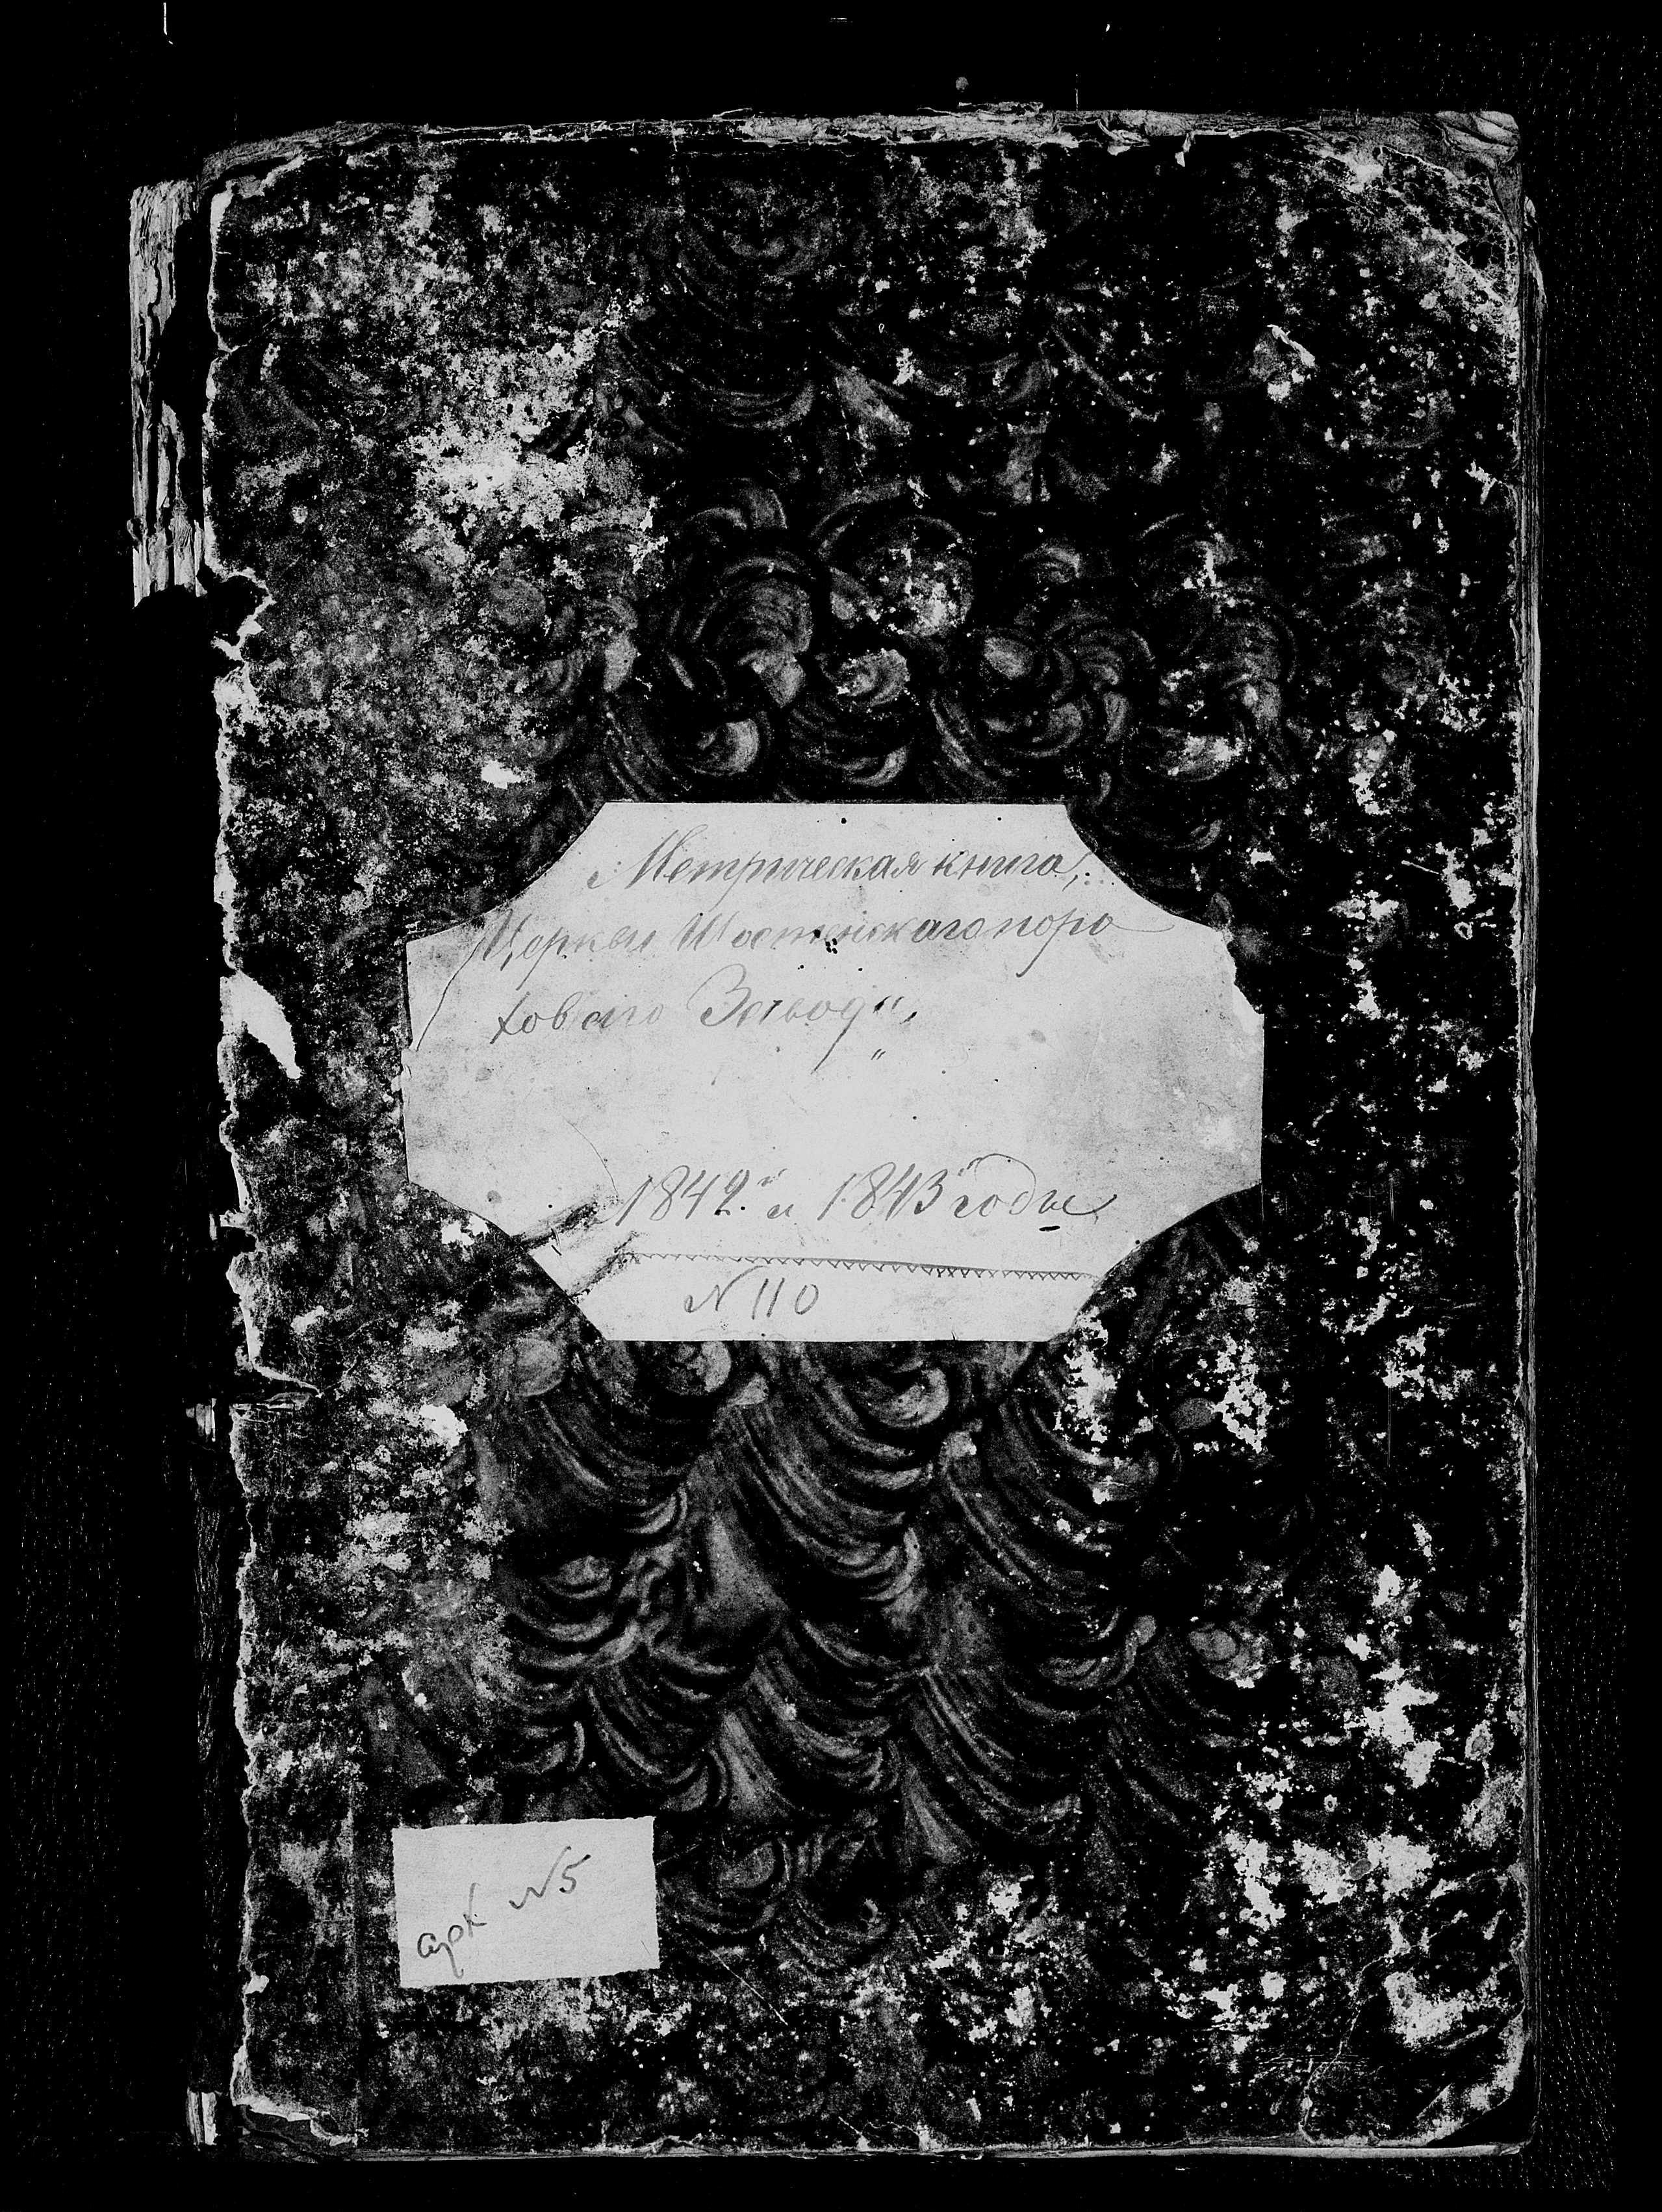 Метрическая книга,
Церкви Шостенскаго поро
ховаго Завода,
1842й и 1843й годы
N 110
арк N5